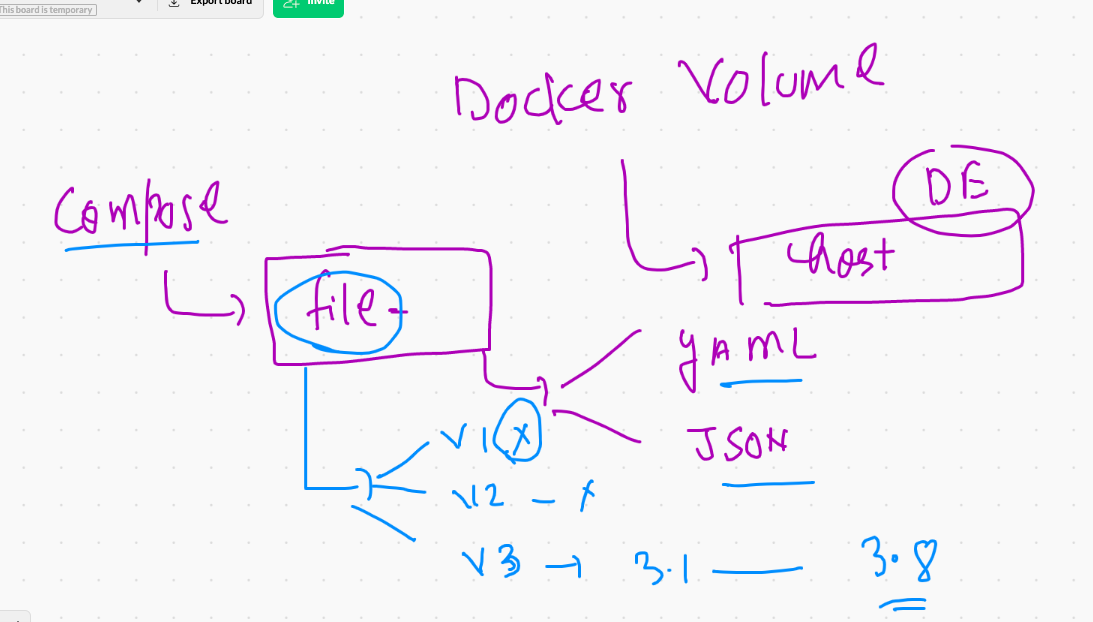 This board is temporary
Export board
Invite
Docker Volume
DE
Compose
host
file
YAML
V1 X
JSON
V2 - X
V3 → 3.1 — 3.8